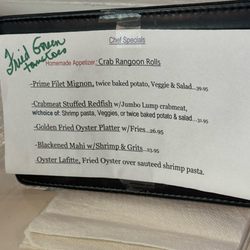 Fried Green
Tomatoes
Chef Specials
Homemade Appetizer: Crab Rangoon Rolls
-Prime Filet Mignon, twice baked potato, Veggie & Salad...39.95
-Crabmeat Stuffed Redfish w/Jumbo Lump crabmeat,
w/choice of: Shrimp pasta, Veggies, or twice baked potato & salad...31.95
-Golden Fried Oyster Platter w/Fries...26.95
-Blackened Mahi w/Shrimp & Grits...23.95
Oyster Lafitte, Fried Oyster over sauteed shrimp pasta.